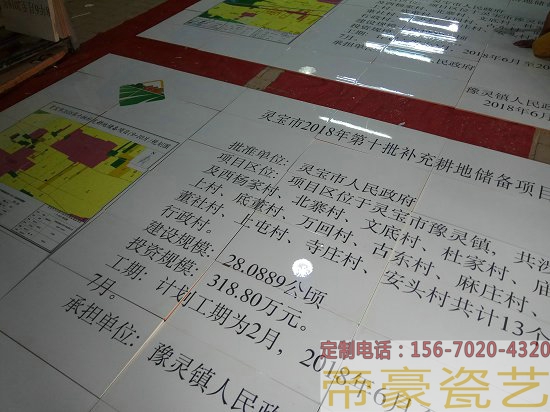 灵宝市2018年第十批补充耕地储备项目
批准单位：灵宝市人民政府
项目区位：项目区位于灵宝市豫灵镇，共涉
及西杨家村、北寨村、文底村、杜家村、庙
上村、底董村、万回村、古东村、麻庄村、
董社村、上屯村、寺庄村、安头村共计13个
行政村。
建设规模：28.0889公顷
投资规模：318.80万元。
工期：计划工期为2月，2018年6月
7月。
承担单位：豫灵镇人民政
2018年6月至
民政府
豫灵镇人民政府
2018年6月
定制电话：156-7020-4320
帝豪瓷艺